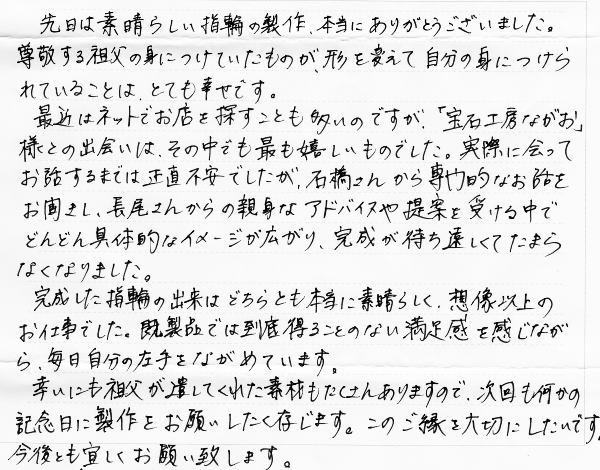 先日は素晴らしい指輪の製作、本当にありがとうございました。
尊敬する祖父の身につけていたものが、形を変えて自分の身につけら
れていることは、とても幸せです。
最近はネットでお店を探すことも多いのですが、「宝石工房ながお」
様との出会いは、その中でも最も嬉しいものでした。実際に会って
お話するまでは正直不安でしたが、石橋さんから専門的なお話を
お聞きし、長尾さんからの親身なアドバイスや提案を受ける中で
どんどん具体的なイメージが広がり、完成が待ち遠しくてたまら
なくなりました。
完成した指輪の出来はどちらとも本当に素晴らしく、想像以上の
お仕事でした。既製品では到底得ることのない満足感を感じなが
ら、毎日自分の左手をながめています。
幸いにも祖父が遺してくれた素材もたくさんありますので、次回も何かの
記念日に製作をお願いしたく存じます。このご縁を大切にしたいです。
今後とも宜しくお願い致します。